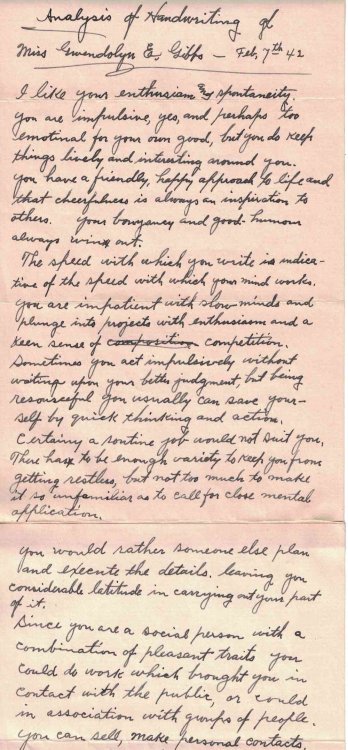 Analysis of Handwriting of
Miss Gwendolyn E. Gibbs - Feb, 7th 42
I like your enthusiasm & spontaneity.
You are impulsive, yes, and perhaps too
emotinal for your own good, but you do keep
things lively and interesting around you.
You have a friendly, happy approach to life and
that cheerfulness is always an inspiration to
others. Your bouyancy and good-humor
always wins out.
The speed with which you write is indica-
tive of the speed with which your mind works.
You are impatient with slow minds and
plunge into projects with enthusiasm and a
keen sense of composition competition.
Sometimes you act impulsively without
waiting upon your better judgment, but being
resourceful you usually can save your-
self by quick thinking and action.
Certainy a routine job would not suit you.
There has to be enough variety to keep you from
getting restless, but not too much to make
it so unfamiliar as to call for close mental
application.
You would rather someone else plan
and execute the details, leaving you
considerable latitude in carrying out your part
of it.
Since you are a social person with a
combination of pleasant traits you
could do work which brought you in
contact with the public, or could
in association with groups of people.
You can sell, make personal contacts,